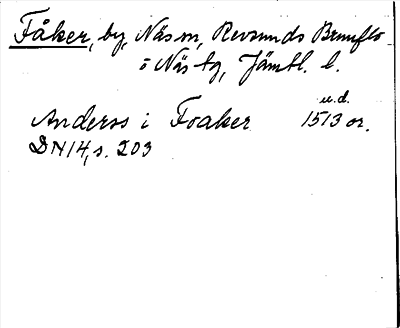 Fåker, by, Näs sn, Revsunds Brunflo
o Näs tg, Jämtl. l.
u.d.
Anderss i Foaker 1513 or.
DN 14, s. 203